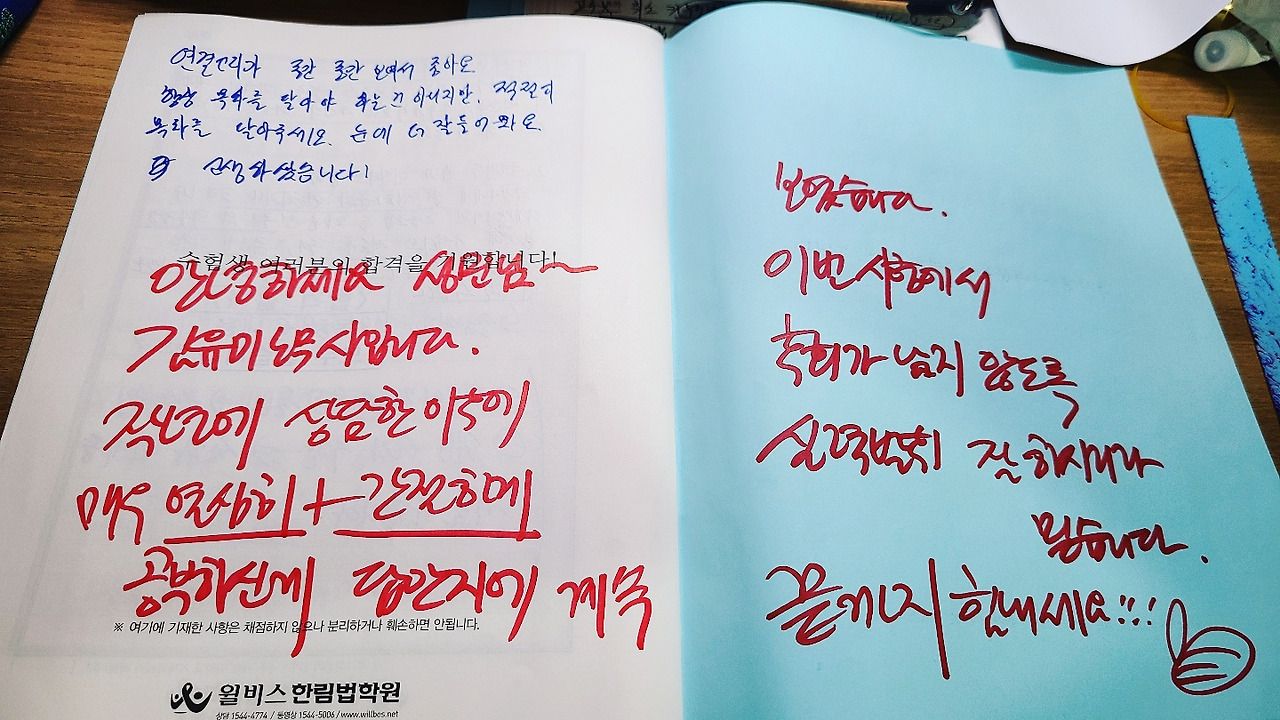 연결고리가 중간 중간 보여서 좋아요
항상 목차를 달아야 하는건 아니지만, 적절히
목차를 달아주세요. 눈에 더 잘들어와요.
고생하셨습니다!
수험생 여러분의 합격을 기원합니다!
안녕하세요 상민님~
김유미 노무사입니다.
작년에 상담한 이후에
매우 열심히 + 간절하게
공부하신게 답안지에 계속
※ 여기에 기재한 사항은 채점하지 않으나 분리하거나 훼손하면 안됩니다.
윌비스 한림법학원
상담 1544-4774 / 동영상 1544-5006 / www.willbes.net
보였습니다.
이번 시험에서
후회가 남지 않도록
실력발휘 잘 하시리라
믿습니다.
끝까지 힘내세요!!!